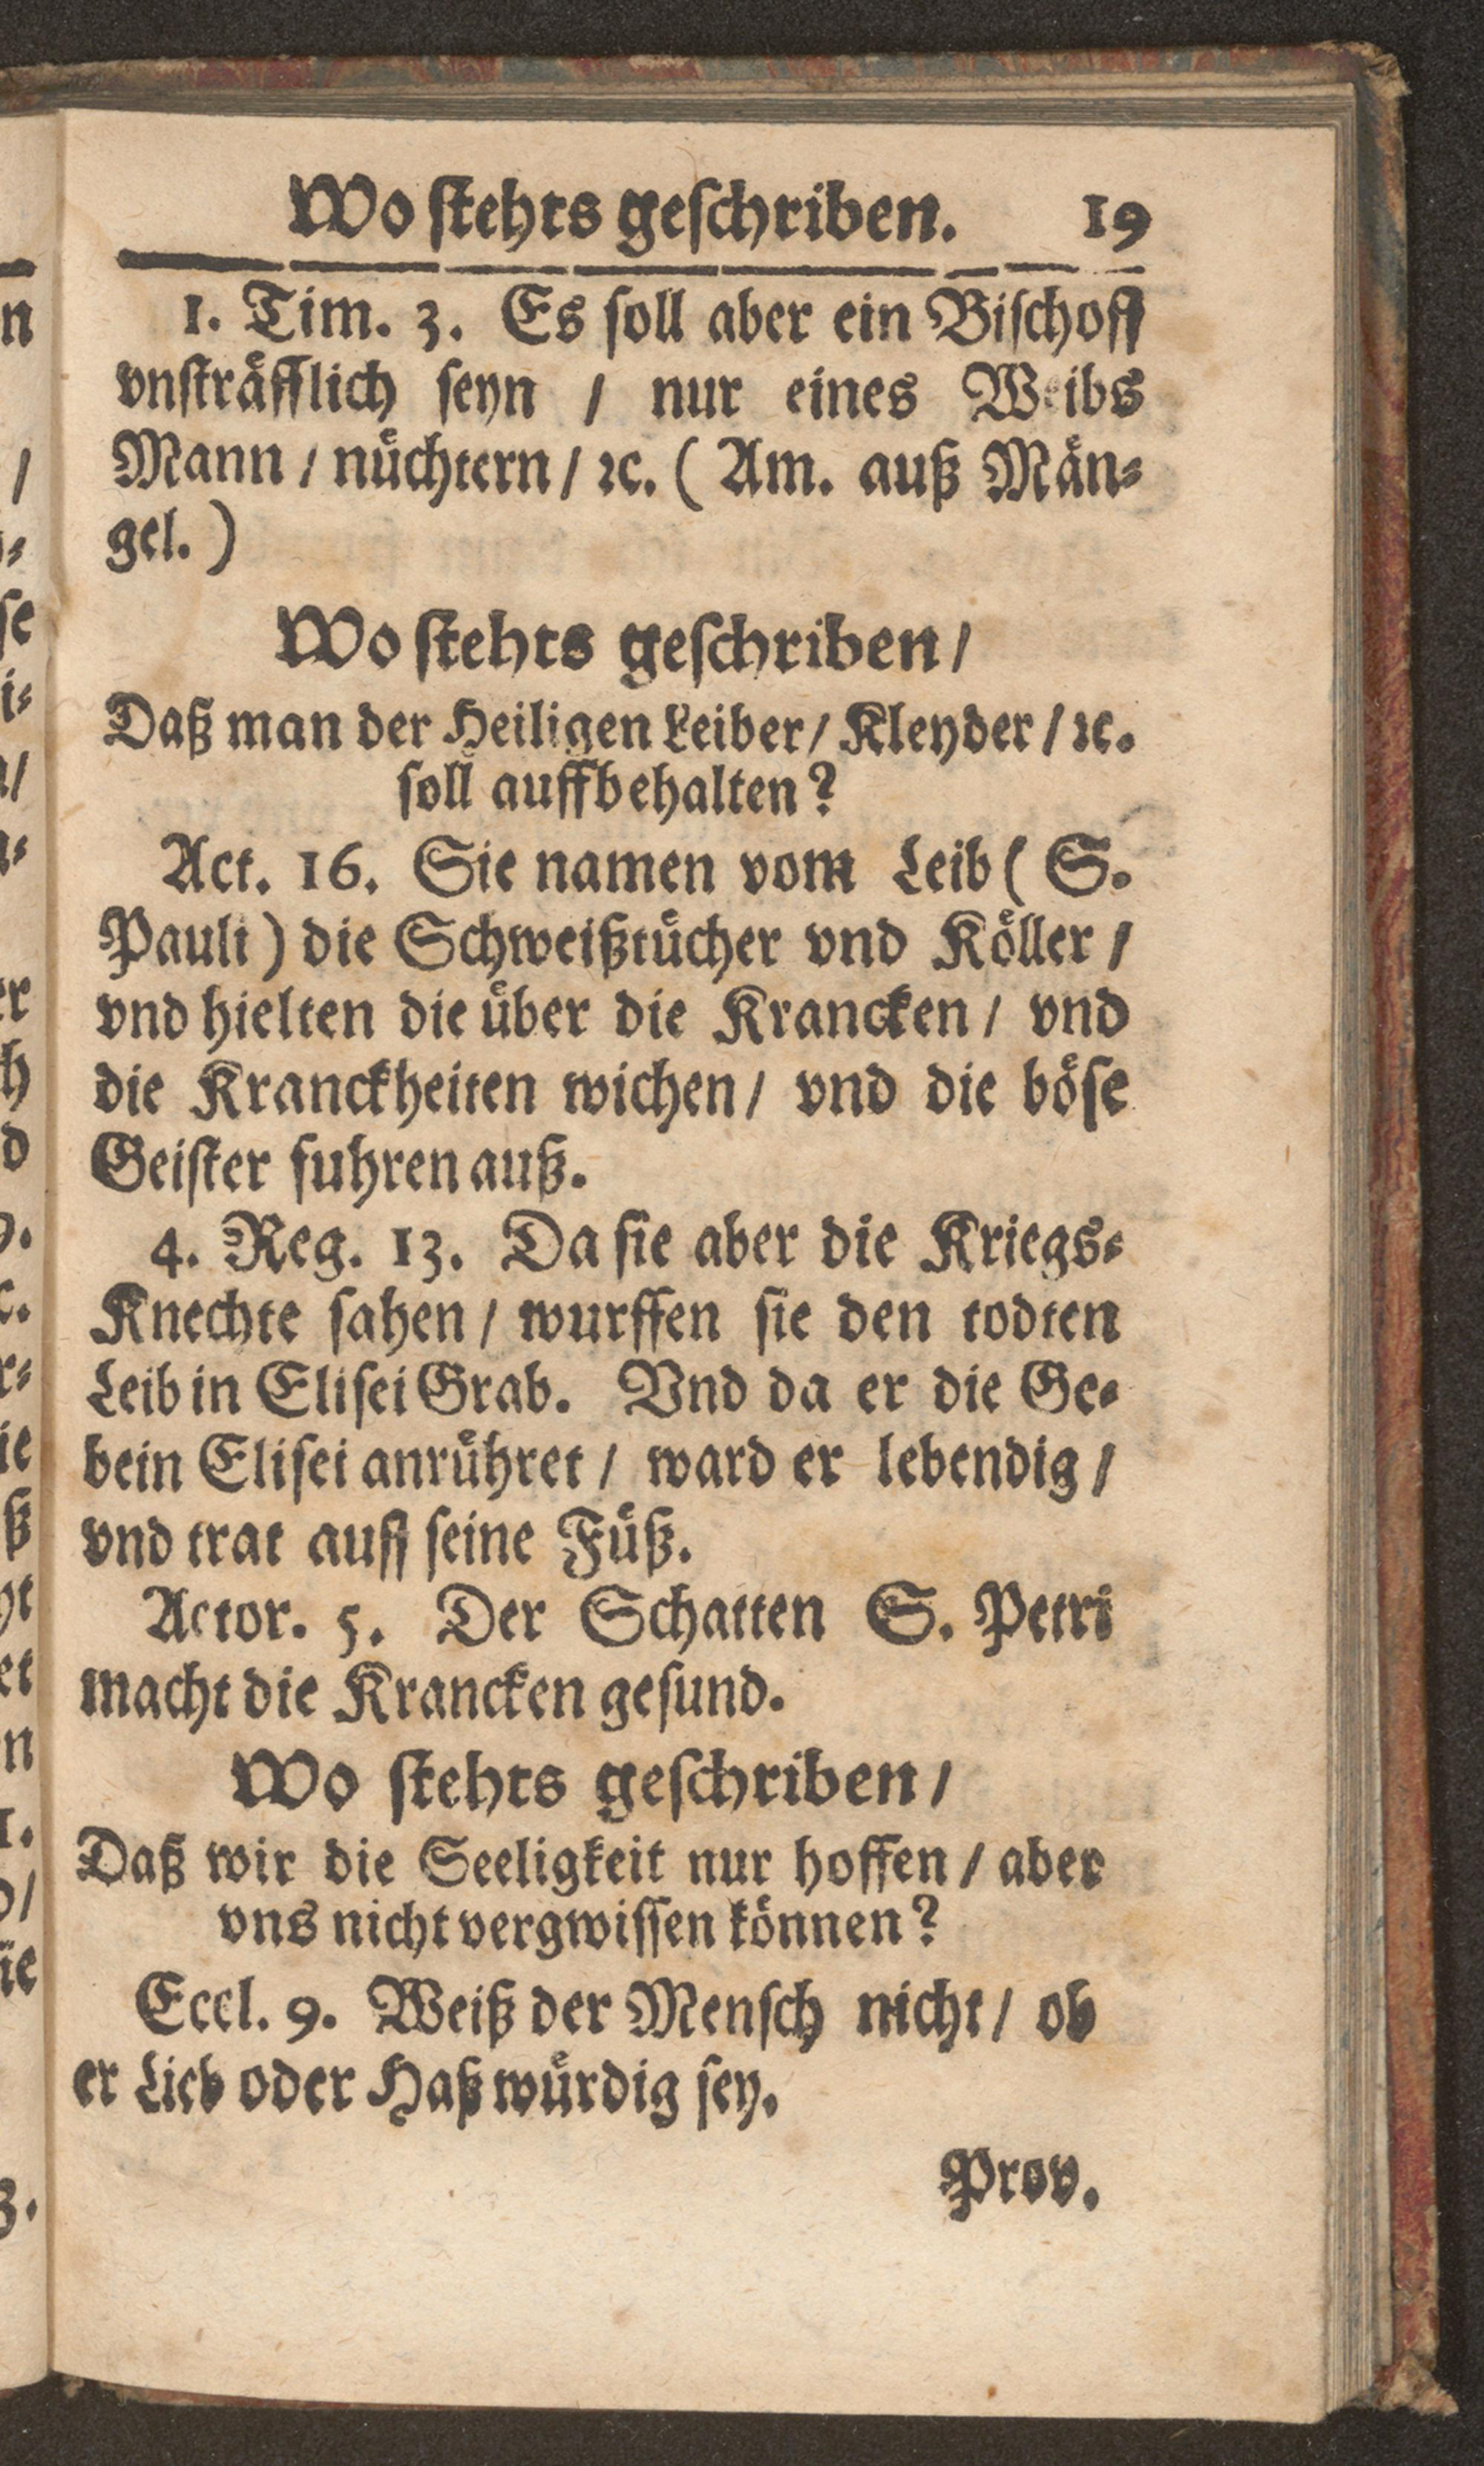 Wo stehts geschriben. 19
1. Tim. 3. Es soll aber ein Bischoff
vnsträfflich seyn / nur eines Weibs
Mann / nüchtern / ꝛc. ( Am. auß Män⸗
gel. )
Wo stehts geschriben /
Daß man der Heiligen Leiber / Kleyder / ꝛc.
soll auffbehalten?
Act. 16. Sie namen vom Leib ( S.
Pauli ) die Schweißtücher vnd Köller /
vnd hielten die über die Krancken / vnd
die Kranckheiten wichen / vnd die böse
Geister fuhren auß.
4. Reg. 13. Da sie aber die Kriegs⸗
Knechte sahen / wurffen sie den todten
Leib in Elisei Grab. Vnd da er die Ge⸗
bein Elisei anrühret / ward er lebendig /
vnd trat auff seine Füß.
Actor. 5. Der Schatten S. Petri
macht die Krancken gesund.
Wo stehts geschriben /
Daß wir die Seeligkeit nur hoffen / aber
vns nicht vergwissen können?
Eccl. 9. Weiß der Mensch nicht / ob
er Lieb oder Haß würdig sey.
Prov.